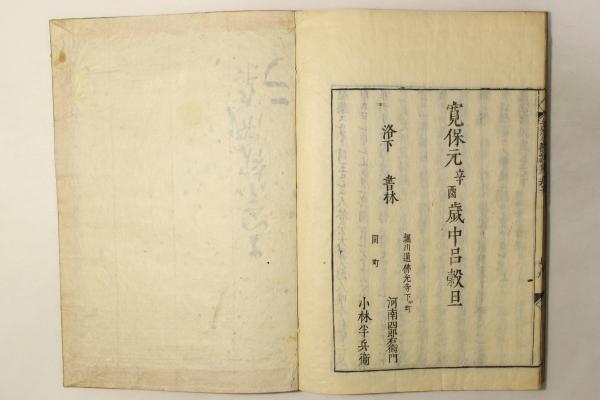 寛保元辛酉歳中呂穀旦
洛下 書林
堀川通佛光寺下ル町
河南四郎右衛門
同町
小林半兵衛